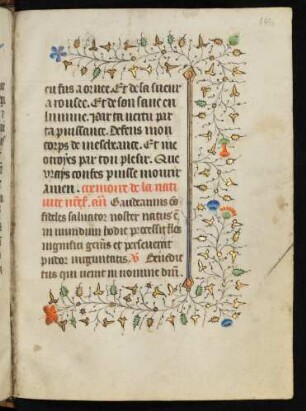 en fus a croice. Et de sa sueur
arousee. Et de son sanc en
lumine. par tu vertu par
ta puissance. Defens mon
corps de mescheance. Et me
otroyes par ton plesir. Que
vrays confes puisse mourir
amen. memoire de la nati
uite añ. Gaudeamus
fideles saluator noster natus ē
in mundum hodie processit
magnifici geris et perseuerat
pudor uirginitatis. v Benedic
tus qui uenit in nomine dm̄.